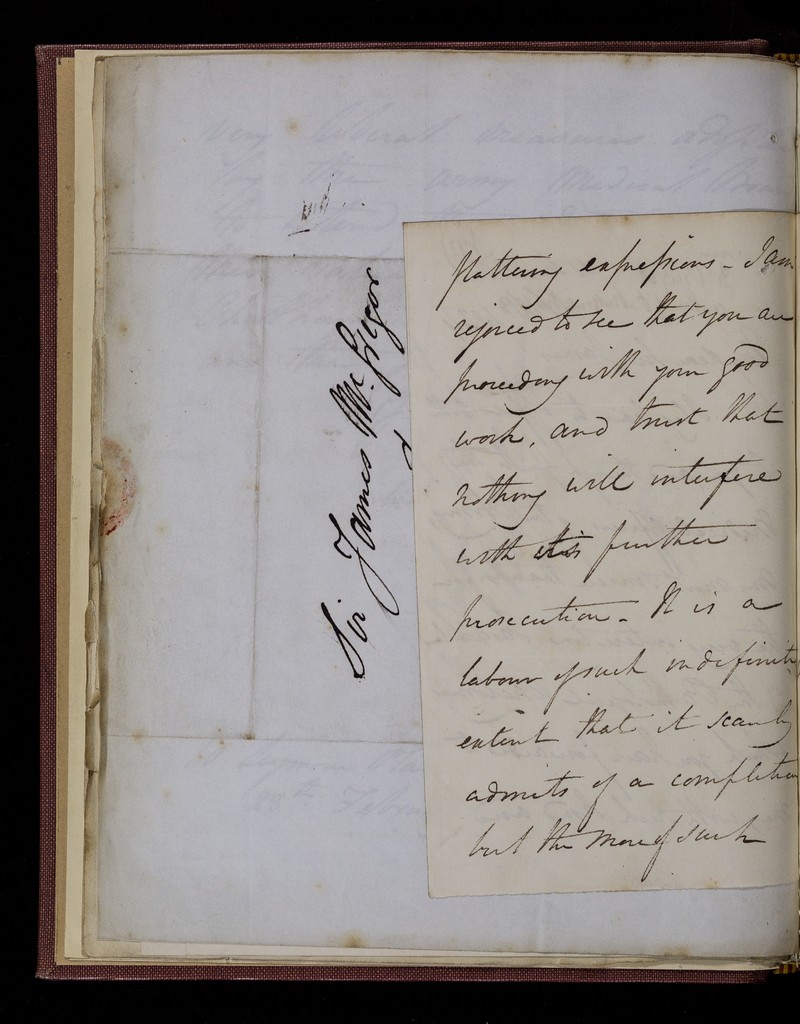 Sir James McGrigor
flattering expressions - I am
rejoiced to see that you are
proceeding with your good
work, and trust that
nothing will interfere
with its further
prosecution - It is a
labour of such indefinite
extent that it scarcely
admits of a completion
but the more of such